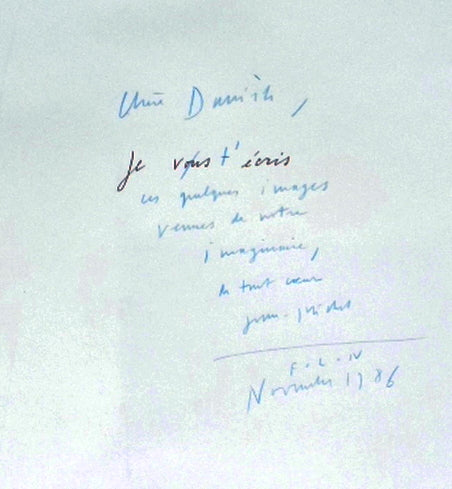 Chère Danièle,
Je vous t'écris
ces quelques images
venues de notre
imaginaire,
de tout cœur
Jean-Michel
F.L.N
November 1986